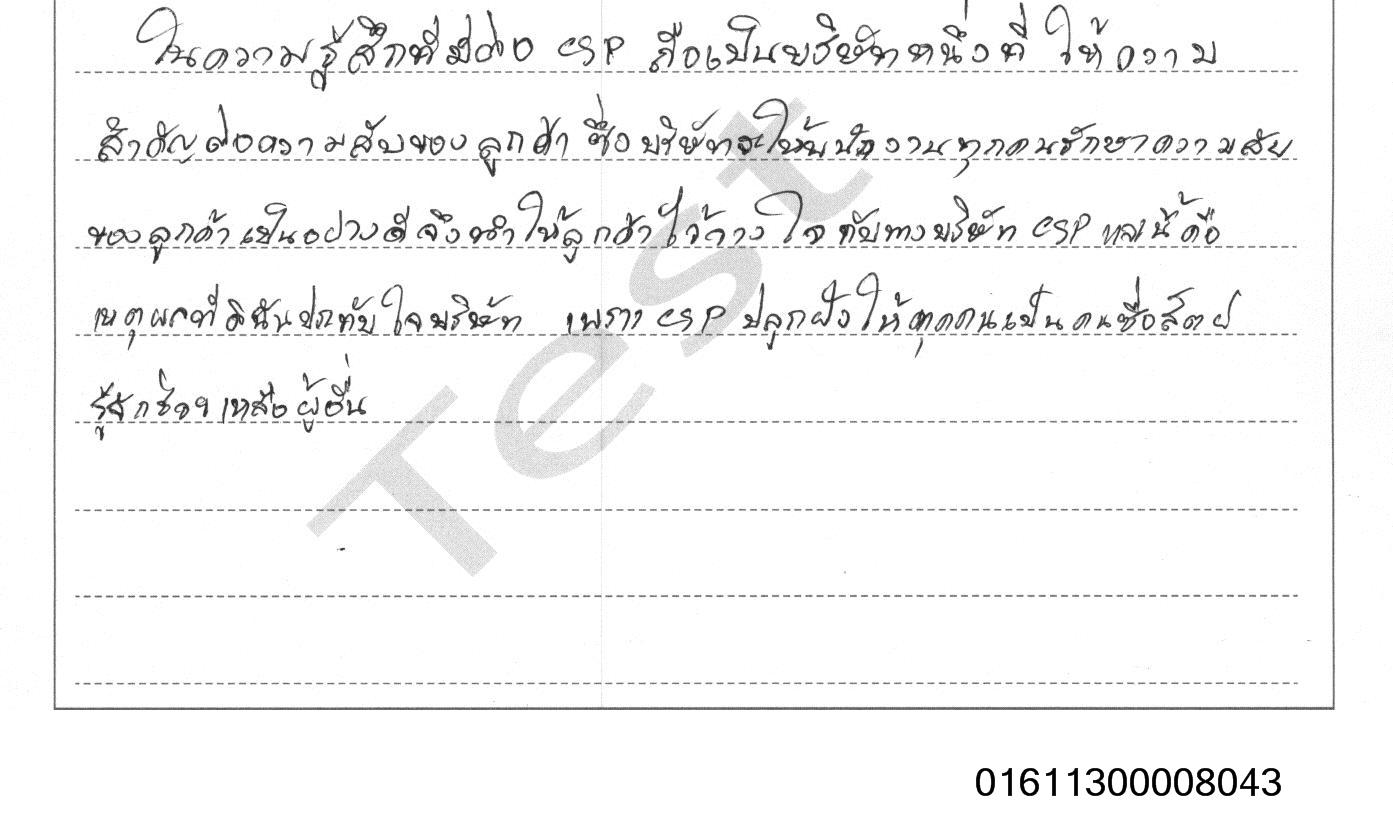 ในความรู้สึกที่มีต่อ CSP ถือเป็นบริษัทหนึ่งที่ ให้ความ
สำคัญต่อความลับของลูกค้า ซึ่งบริษัทจะให้พนักงานทุกคนรักษาความลับ
ของลูกค้าเป็นอย่างดี จึงทำให้ลูกค้าไว้วางใจ กับทางบริษัท CSP เหล่านี้คือ
เหตุผลที่ดิฉันประทับใจบริษัท เพราะ CSP ปลูกฝังให้ทุกคนเป็นคนซื่อสัตย์
รู้จักช่วยเหลือผู้อื่น
Test
01611300008043